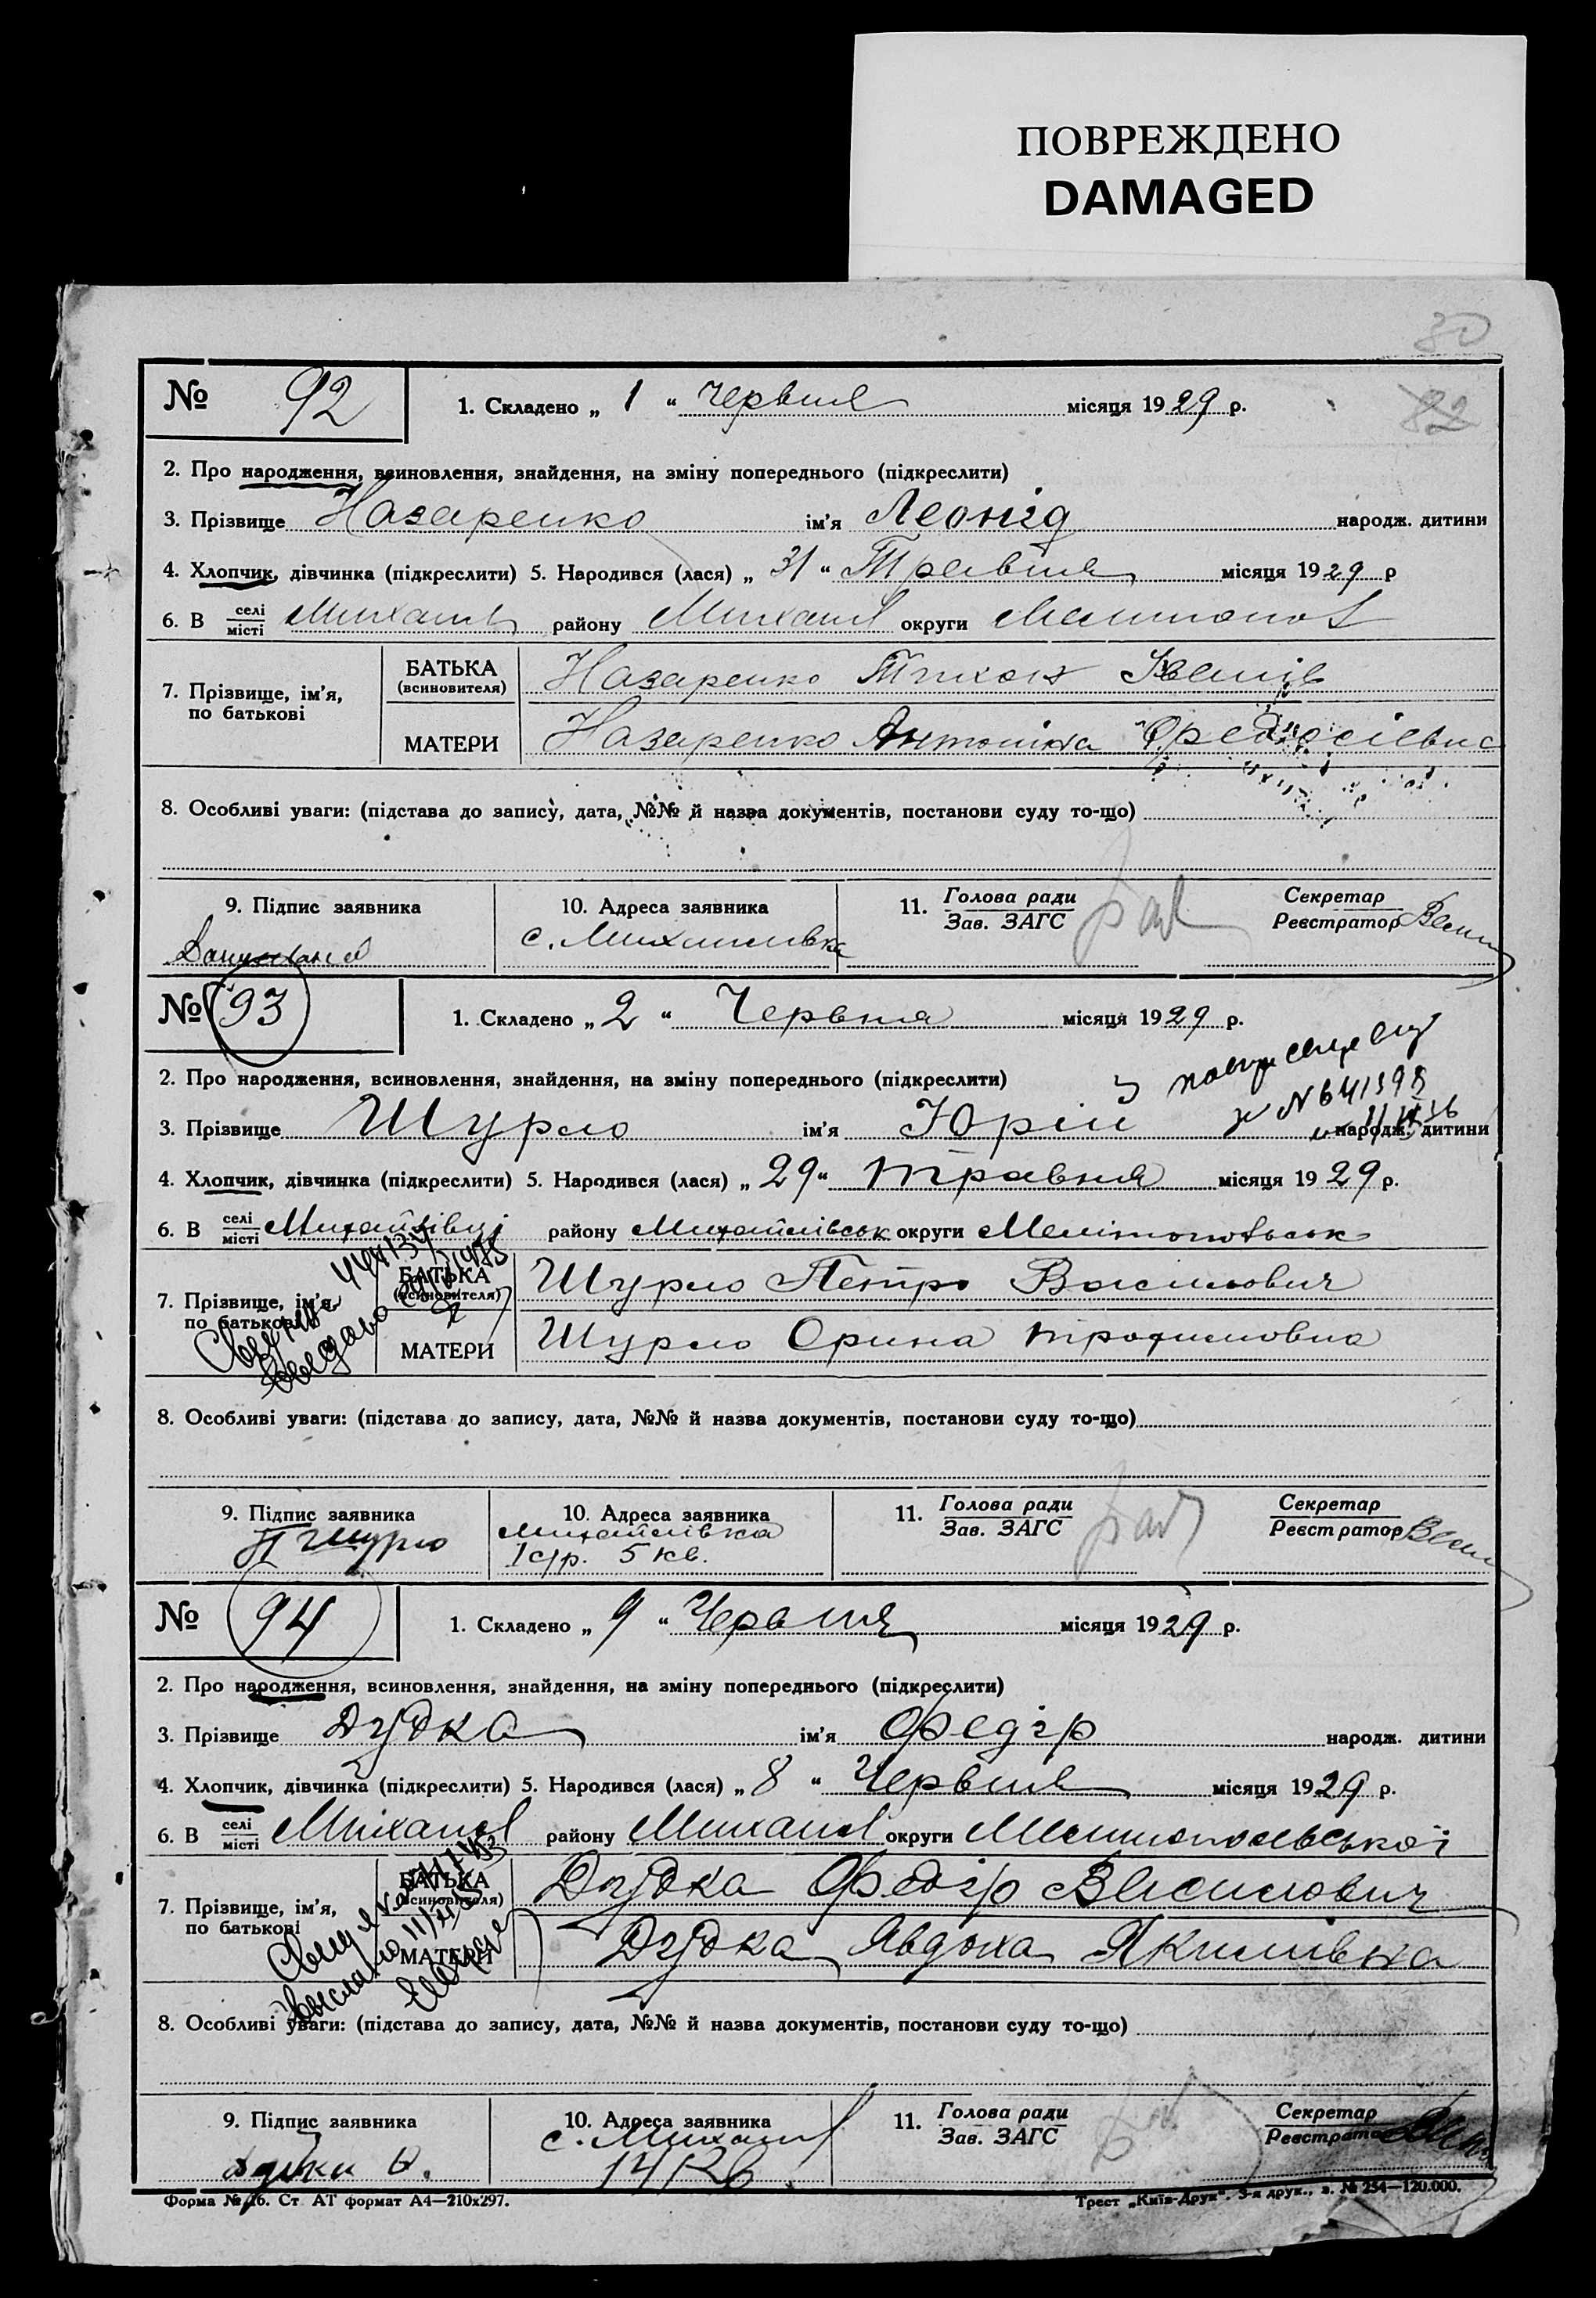 ПОВРЕЖДЕНО
DAMAGED
30
82
№ 92 1. Складено „ 1 “ червня місяця 1929 р.
2. Про народження, всиновлення, знайдення, на зміну попереднього (підкреслити)
3. Прізвище Назаренко ім’я Леонід народж. дитини
4. Хлопчик, дівчинка (підкреслити) 5. Народився (лася) „ 31 “ Травня місяця 1929 р
6. В селі місті Михайлів району Михайлів округи Мелитопол
7. Прізвище, ім’я, по батькові БАТЬКА (всиновителя) Назаренко Тихон Іванів
МАТЕРИ Назаренко Антоніна
8. Особливі уваги: (підстава до запису, дата, №№ й назва документів, постанови суду то-що)
9. Підпис заявника 10. Адреса заявника 11. Голова ради Зав. ЗАГС Секретар Реєстратор
с. Михайлівка
№ 93 1. Складено „ 2 “ Червня місяця 1929 р.
2. Про народження, всиновлення, знайдення, на зміну попереднього (підкреслити)
3. Прізвище Шурло ім’я Юрій народж. дитини
4. Хлопчик, дівчинка (підкреслити) 5. Народився (лася) „ 29 “ травня місяця 1929 р.
6. В селі місті Михайлівці району Михайлівськ округи Мелітопольськ
7. Прізвище, ім’я, по батькові БАТЬКА (всиновителя) Шурло Петро Василович
МАТЕРИ Шурло Орина Трофимовна
8. Особливі уваги: (підстава до запису, дата, №№ й назва документів, постанови суду то-що)
9. Підпис заявника 10. Адреса заявника 11. Голова ради Зав. ЗАГС Секретар Реєстратор
П Шурло Михайлівка
1 стр. 5 кв.
№ 94 1. Складено „ 9 “ Червня місяця 1929 р.
2. Про народження, всиновлення, знайдення, на зміну попереднього (підкреслити)
3. Прізвище Дудка ім’я Федір народж. дитини
4. Хлопчик, дівчинка (підкреслити) 5. Народився (лася) „ 8 “ Червня місяця 1929 р.
6. В селі місті Михайл району Михайл округи Мелитопольської
7. Прізвище, ім’я, по батькові БАТЬКА (всиновителя) Дудка Федір Василович
МАТЕРИ Дудка Явдоха Якимівна
8. Особливі уваги: (підстава до запису, дата, №№ й назва документів, постанови суду то-що)
9. Підпис заявника 10. Адреса заявника 11. Голова ради Зав. ЗАГС Секретар Реєстратор
с. Михайл
14 Кв
Форма № 16. Ст. АТ формат А4—210x297.
Трест „Київ-Друк“. 3-я друк., з. № 254—120.000.